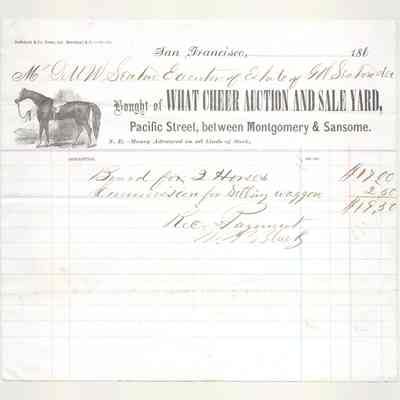 San Francisco, 186
Mr C.U.W. Seaton Executor of Estate of G.W. Seaton dec
Bought of WHAT CHEER AUCTION AND SALE YARD,
Pacific Street, between Montgomery & Sansome.
N. B.—Money Advanced on all kinds of Stock.
Board for 2 Horses $17.00
Commission for Selling waggon 2.50
$19.50
Rec Payment